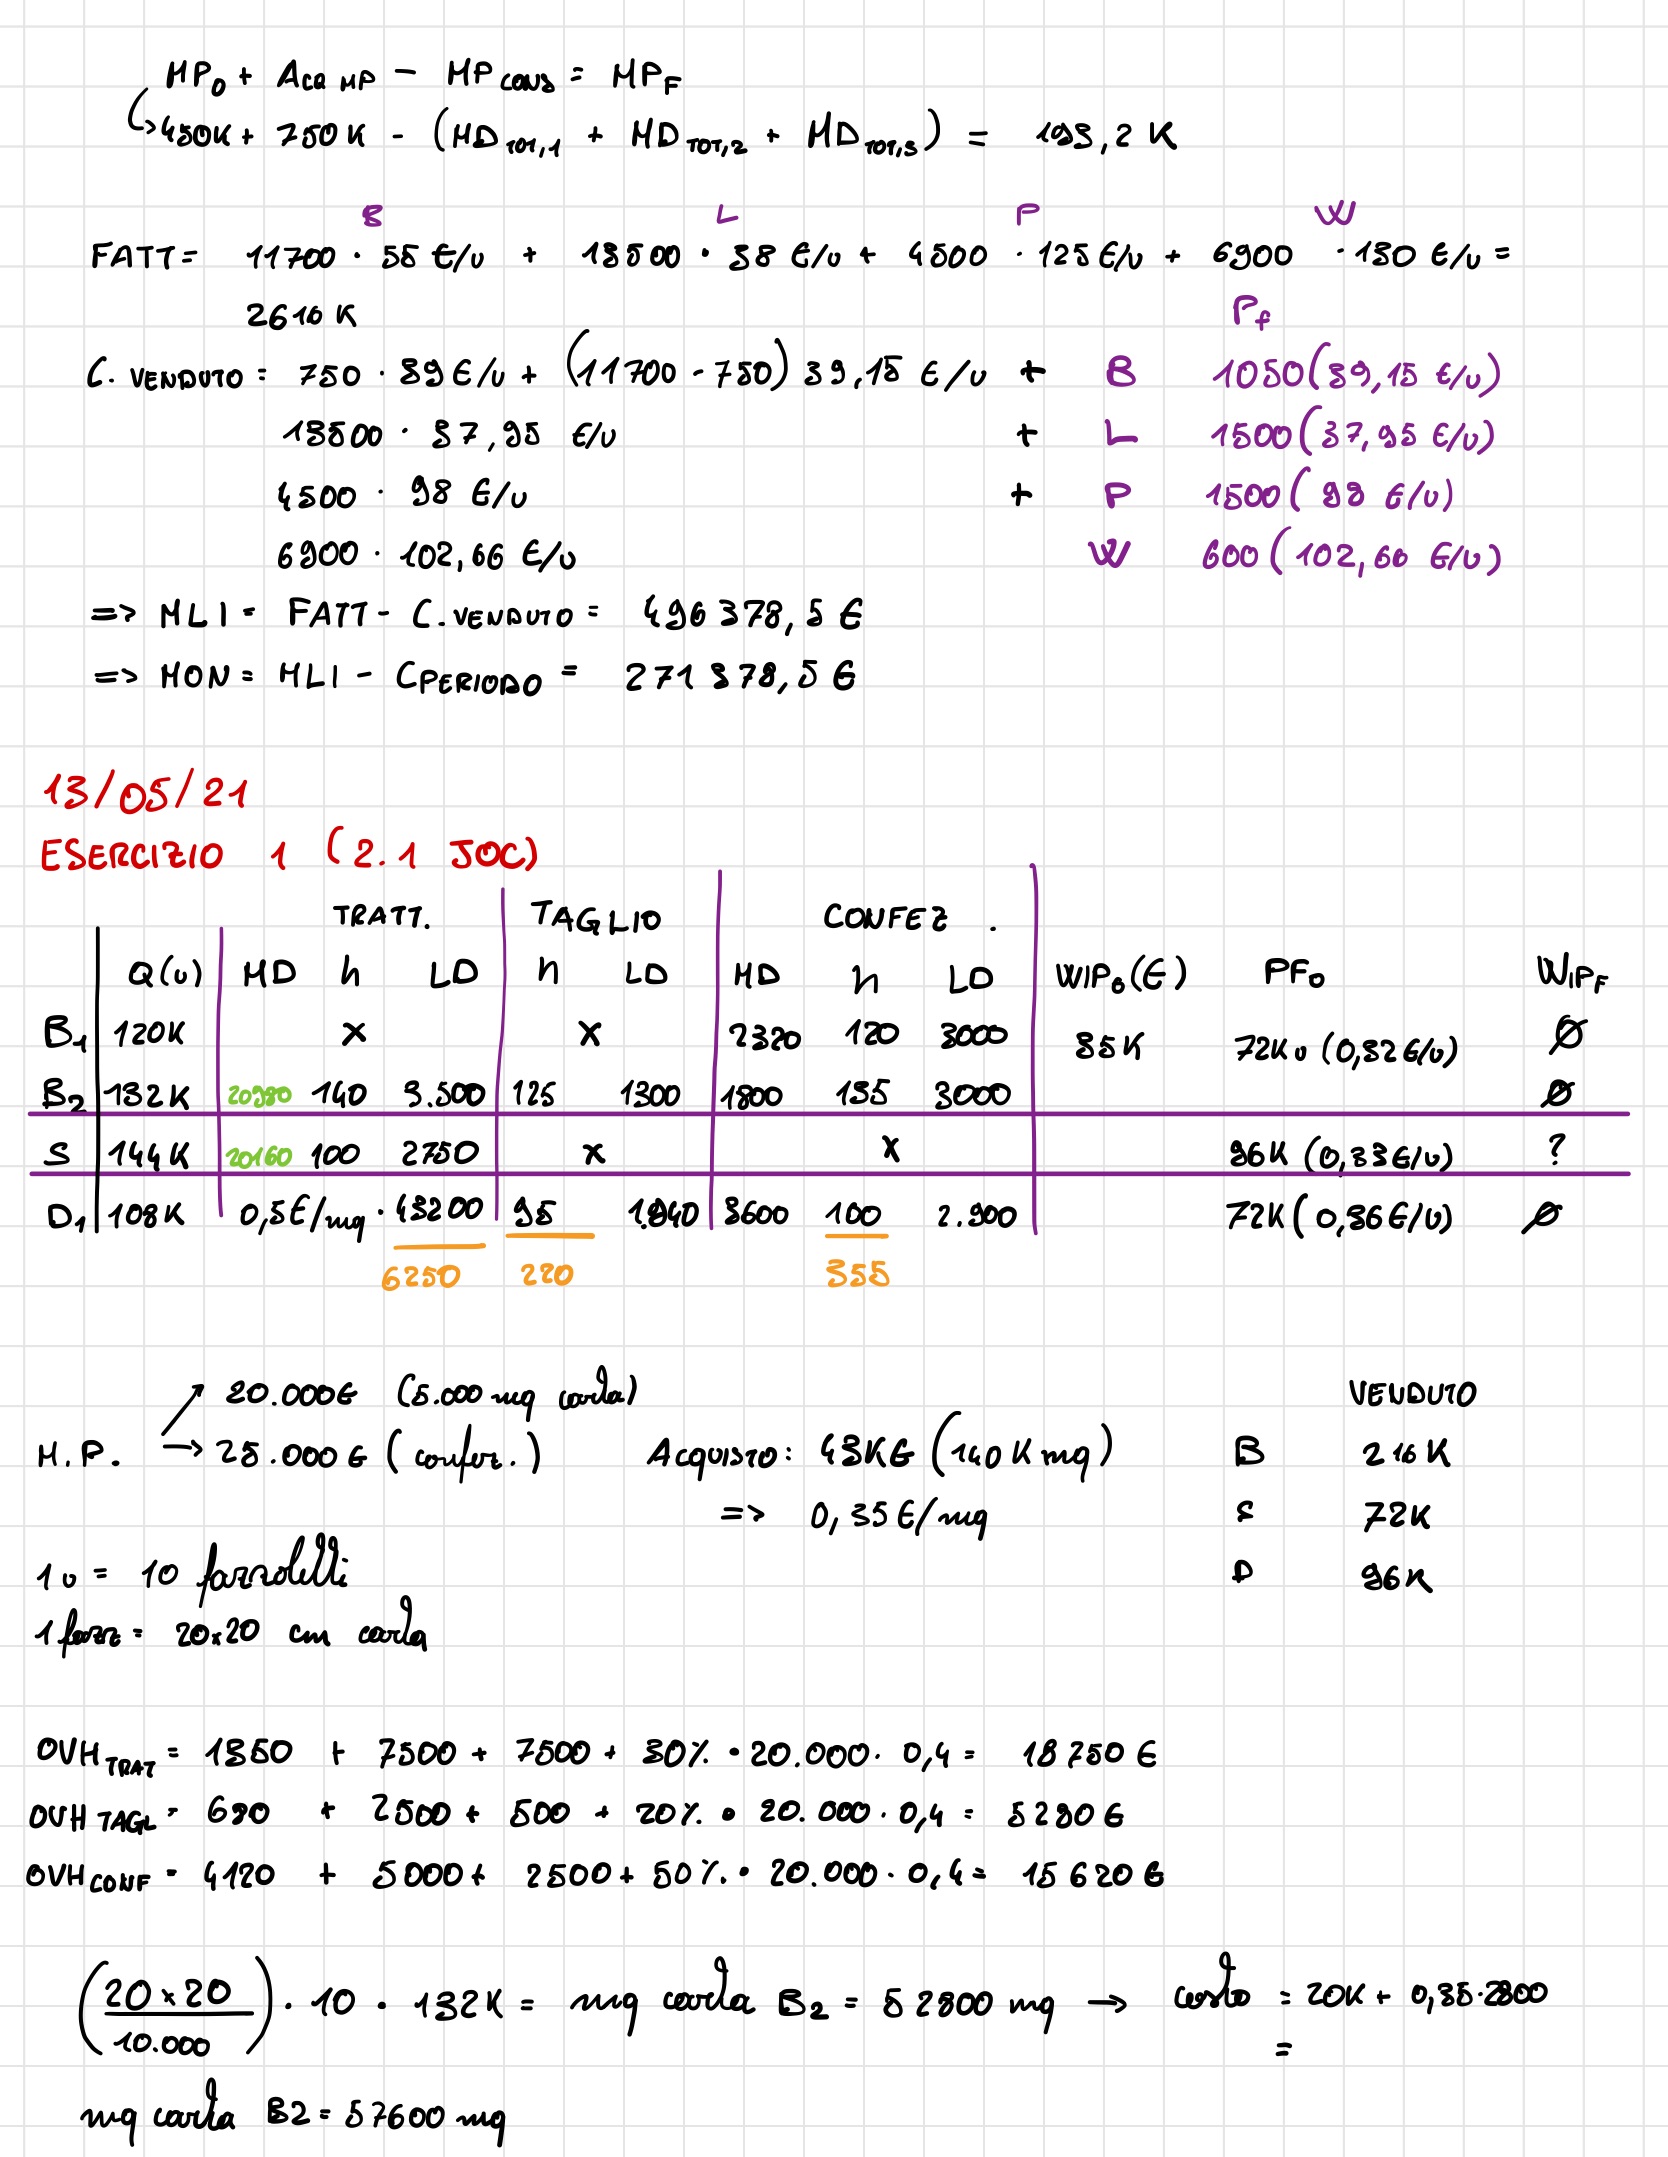 MP0 + Acq MP - MP CONS = MPF
↳ 450K + 750K - (MD TOT,1 + MD TOT,2 + MD TOT,3) = 193,2 K
B L P W
FATT = 11700 · 55 €/u + 13500 · 38 €/u + 4500 · 125 €/u + 6900 · 130 €/u =
2616 K
Pf
C. VENDUTO = 750 · 39 €/u + (11700 - 750) 39,15 €/u + B 1050 (39,15 €/u)
13500 · 37,95 €/u + L 1500 (37,95 €/u)
4500 · 98 €/u + P 1500 (98 €/u)
6900 · 102,66 €/u W 600 (102,66 €/u)
=> MLI = FATT - C. VENDUTO = 496 378,5 €
=> MON = MLI - C PERIODO = 271 378,5 €
13/05/21
ESERCIZIO 1 (2.1 JOC)
TRATT. TAGLIO CONFEZ.
Q(u) MD h LD h LD MD h LD WIP0(€) PF0 WIPF
B1 120K x x 2320 120 3000 35K 72K u (0,32 €/u) Ø
B2 132K 20980 140 3.500 125 1300 1800 135 3000 Ø
S 144K 20160 100 2750 x x 96K (0,33 €/u) ?
D1 108K 0,5 €/mq · 43200 95 1.940 3600 100 2.900 72K (0,36 €/u) Ø
6250 220 355
VENDUTO
20.000 € (5.000 mq carta)
M.P. → 25.000 € (confez.) Acquisto: 43K€ (140 K mq) B 216K
=> 0,35 €/mq S 72K
1u = 10 fazzoletti D 96K
1 fazz = 20x20 cm carta
OVH TRAT = 1350 + 7500 + 7500 + 30% · 20.000 · 0,4 = 18 750 €
OVH TAGL = 680 + 2500 + 500 + 20% · 20.000 · 0,4 = 5280 €
OVH CONF = 4120 + 5000 + 2500 + 50% · 20.000 · 0,4 = 15 620 €
(20 x 20 / 10.000) · 10 · 132K = mq carta B2 = 52800 mq → costo = 20K + 0,35·2800
=
mq carta B2 = 57600 mq